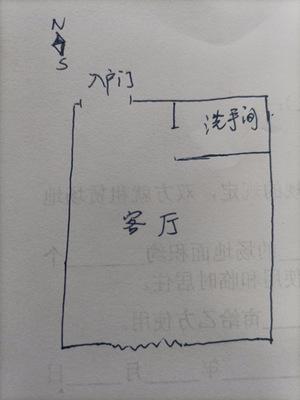 N
S
入户门
洗手间
客厅